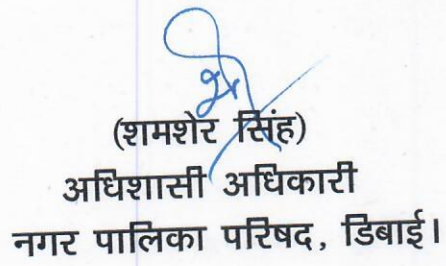 (शमशेर सिंह)
अधिशासी अधिकारी
नगर पालिका परिषद, डिबाई।